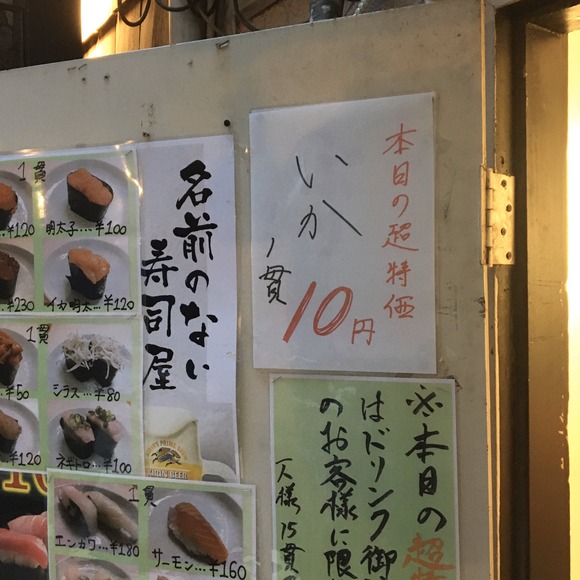 本日の超特価
いか
1貫
10円
名前のない
寿司屋
KIRIN BEER
※本日の超
はドリンク御
のお客様に限
一人様15貫
1貫
¥120
明太子…¥100
¥230
イカ明太…¥120
1貫
¥50
シラス…¥80
¥120
ネギトロ…¥100
1貫
エンガワ…¥180
サーモン…¥160